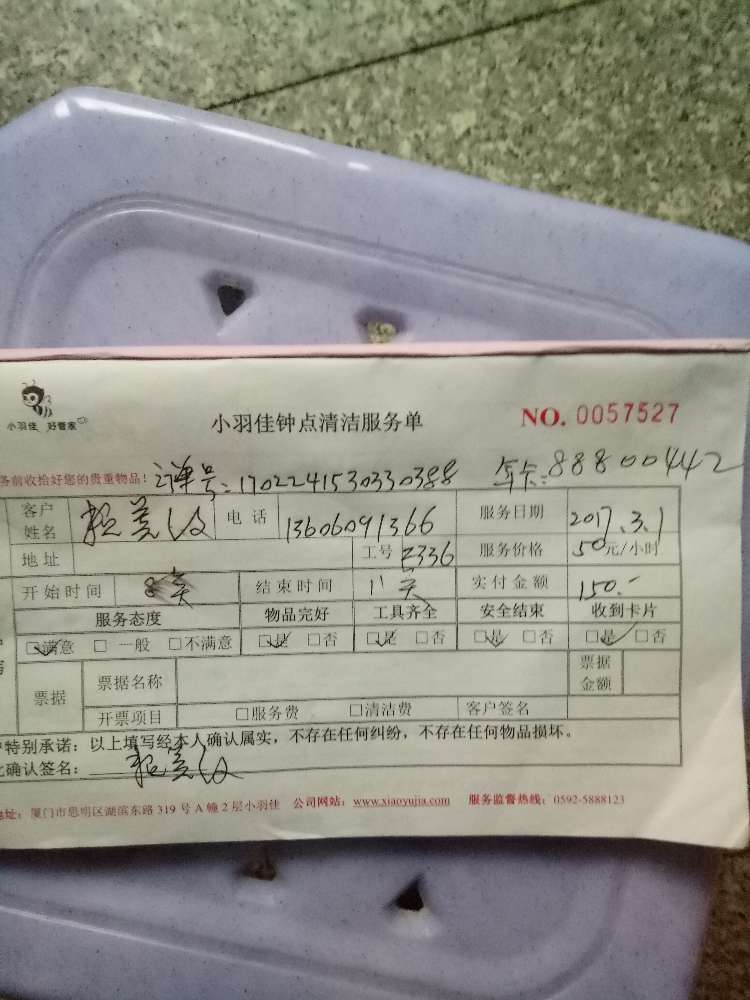 小羽佳 好管家
小羽佳钟点清洁服务单 NO. 0057527
务前收拾好您的贵重物品! 订单号:170224153030388 年卡:88800442
客户姓名 电话 13606091366 服务日期 2017.3.1
地址 工号 E336 服务价格 50元/小时
开始时间 8 结束时间 11 实付金额 150.-
服务态度 物品完好 工具齐全 安全结束 收到卡片
☑满意 □ 一般 □不满意 ☑是 □否 ☑是 □否 ☑是 □否 ☑是 □否
票据 票据名称 票据金额
开票项目 □服务费 □清洁费 客户签名
特别承诺:以上填写经本人确认属实,不存在任何纠纷,不存在任何物品损坏。
确认签名:
地址:厦门市思明区湖滨东路319号A幢2层小羽佳 公司网站:www.xiaoyujia.com 服务监督热线:0592-5888123